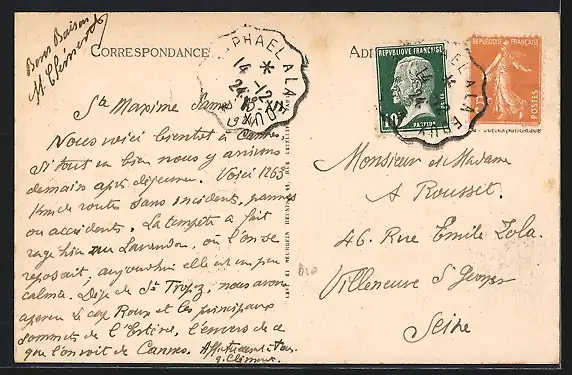 Bons Baisers
M. Clément
CORRESPONDANCE
PHAEL A LA FAUX
14 - 12
24
RÉPUBLIQUE FRANÇAISE
10
PASTEUR
POSTES
REPUBLIQUE FRANÇAISE
POSTES
Ste Maxime Samedi
Nous voici bientôt à Cannes
Si tout va bien nous y arrivons
demain après déjeuner. Voici 1263
Km de routes sans incidents, pannes
ou accidents. La tempête a fait
rage hier au Lavandou, où l'on se
reposait, aujourd'hui elle est un peu
calmée. Déjà de St Tropez, nous avons
aperçu le cap Roux et les principaux
sommets de l'Estérel, l'envers de ce
que l'on voit de Cannes. Affectueusement à vous.
Monsieur et Madame
A Rousset
46. Rue Emile Zola.
Villeneuve St Georges
Seine